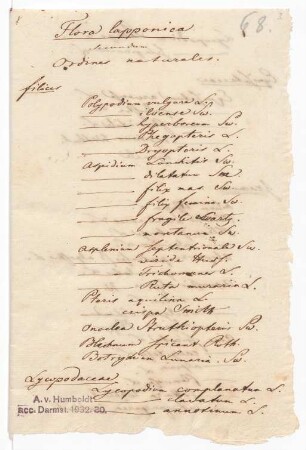 68.
Flora lapponica
secundum
Ordines naturales.
filices
Polypodium vulgare L.
——— ilvense Sw.
——— hyperboreum Sw.
——— Phegopteris L.
——— Dryopteris L.
Aspidium Lonchitis Sw.
——— dilatatum Sm
——— filix mas. Sw.
——— filix femina. Sw.
——— fragile
——— montanum Sw.
Asplenium Septentrionale Sw.
——— viride Huds.
——— Trichomanes L.
——— Ruta muraria L.
Pteris aquilina L.
——— crispa Smith
Onoclea Struthiopteris Sw.
Blechnum Spicant Roth
Botrychium Lunaria. Sw.
Lycopodaceae
Lycopodium complanatum L.
——— clavatum L.
——— annotinum L.
A. v. Humboldt
acc. Darmst. 1932. 80.